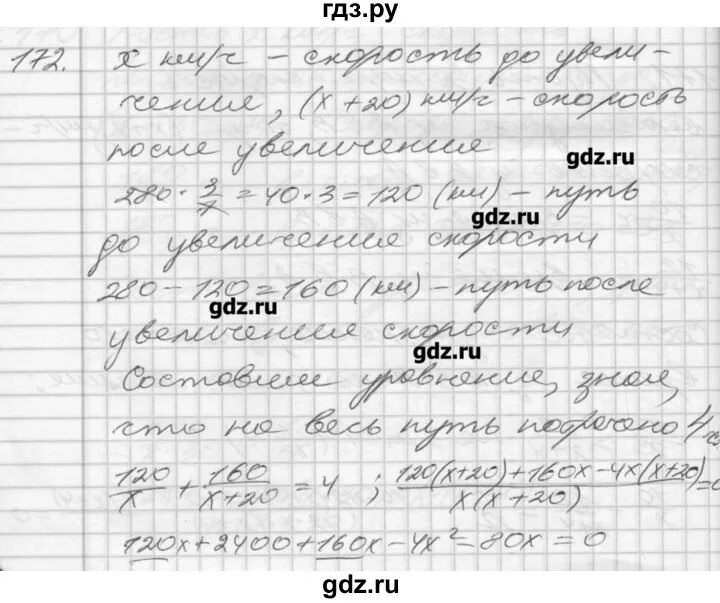 гдз.ру
172. x км/ч – скорость до увели-
чения, (x+20) км/ч – скорость
после увеличения
gdz.ru
280 · 3/7 = 40 · 3 = 120 (км) – путь
gdz.ru
до увеличения скорости
280 – 120 = 160 (км) – путь после
gdz.ru
увеличения скорости
gdz.ru
Составим уравнение, зная,
что на весь путь потрачено 4 ч
120/x + 160/(x+20) = 4 ; (120(x+20)+160x–4x(x+20))/(x(x+20)) = 0
120x + 2400 + 160x – 4x² – 80x = 0
gdz.ru